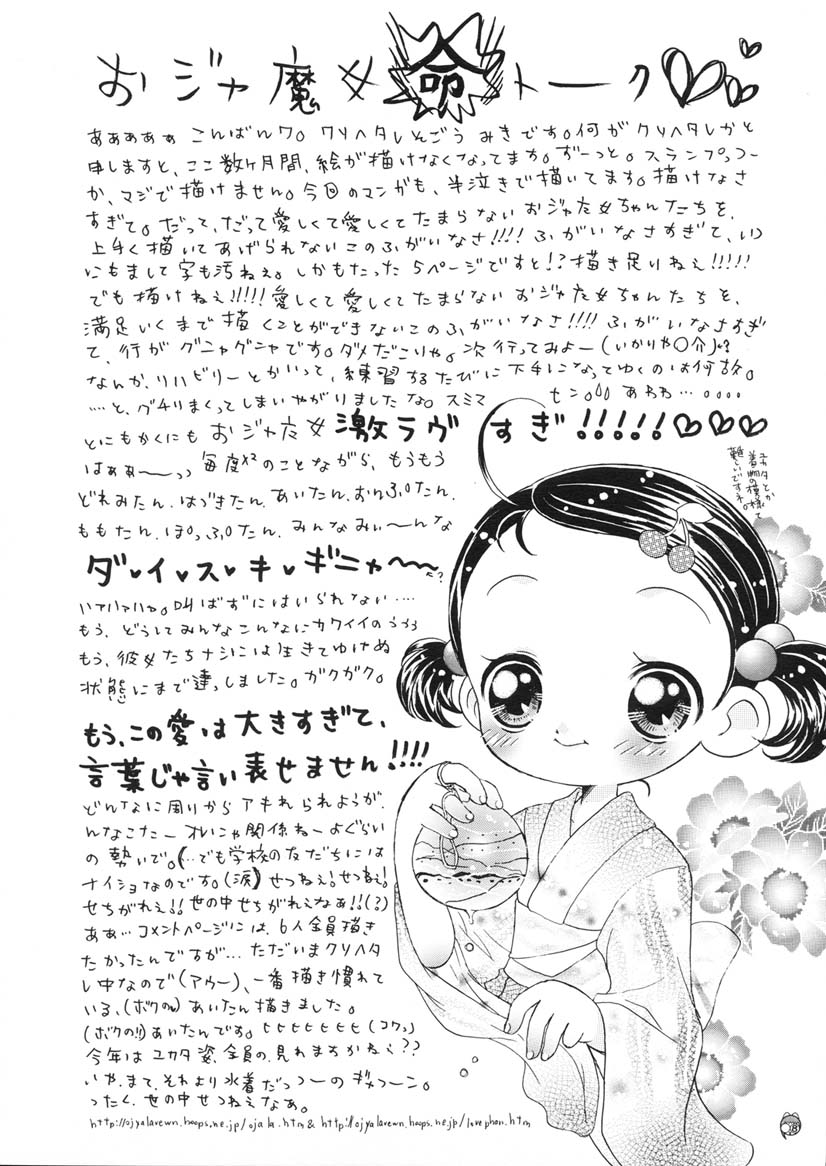 おジャ魔女命トーク♡♡♡
あぁぁぁぁ こんばんワ。クリハタレんごう みきです。何がクリハタレかと
申しますと、ここ数ヶ月間、絵が描けなくなってます。ずーっと。スランプっつー
か、マジで描けません。今回のマンガも、半泣きで描いてます。描けなさ
すぎて。だって、だって愛しくて愛しくてたまらない おジャ女ちゃんたちを、
上手く描いてあげられないこのふがいなさ!!!! ふがいなさすぎて、いつ
にもまして字も汚ねぇ。しかもたった5ページですと!? 描き足りねぇ!!!!!
でも描けねぇ!!!!! 愛しくて愛しくてたまらない おジャ女ちゃんたちを、
満足いくまで描くことができないこのふがいなさ!!!! ふがいなさすぎ
て、行がグニャグニャです。ダメだこりゃ。次行ってみよー(いかりや〇介)
なんか、リハビリーとかいって、練習するたびに下手になってゆくのは何故。
……と、グチりまくってしまいやがりましたな。スミマセン。 あわわ…
とにもかくにも おジャ女 激ラヴすぎ!!!!!♡♡♡
はぁぁ〜〜っっ 毎度のことながら、もうもう
どれみたん、はづきたん、あいたん、おんぷたん、
ももたん、ぽっぷたん、みんなみぃ〜〜んな
ダ・イ・ス・キ・ギニャ〜〜
ハァハァハァ。叫ばずにはいられない‥‥
もう、どうしてみんなこんなにカワイイのううう
もう、彼女たちナシには生きてゆけぬ
状態にまで達っしました。ガクガク。
もう、この愛は大きすぎて、
言葉じゃ言い表せません!!!!
どんなに周りからアキれられようが、
んなこたーオレにゃ関係ねーよぐらい
の勢いで。(…でも学校の友だちには
ナイショなのです。(涙)) せつねぇ! せつねぇ!
せちがれぇ!! 世の中せちがれぇなぁ!!(?)
あぁ… コメントページには、6人全員描き
たかったんですが… ただいまクリハタ
レ中なので(アウー)、一番描き慣れて
いる、(ボクの)あいたん描きました。
(ボクの!!)あいたんです。ヒヒヒヒヒヒ(コワっ)
今年はユカタ姿、全員の、見れますかねぇ??
いや、まて、それより水着だっつーの
ったく、世の中せつねぇなぁ。
ユカタとか
着物の模様て
難しいですネ。
http://ojyalavewn.hoops.ne.jp/ojala.htm & http://ojyalavewn.hoops.ne.jp/lovephon.htm